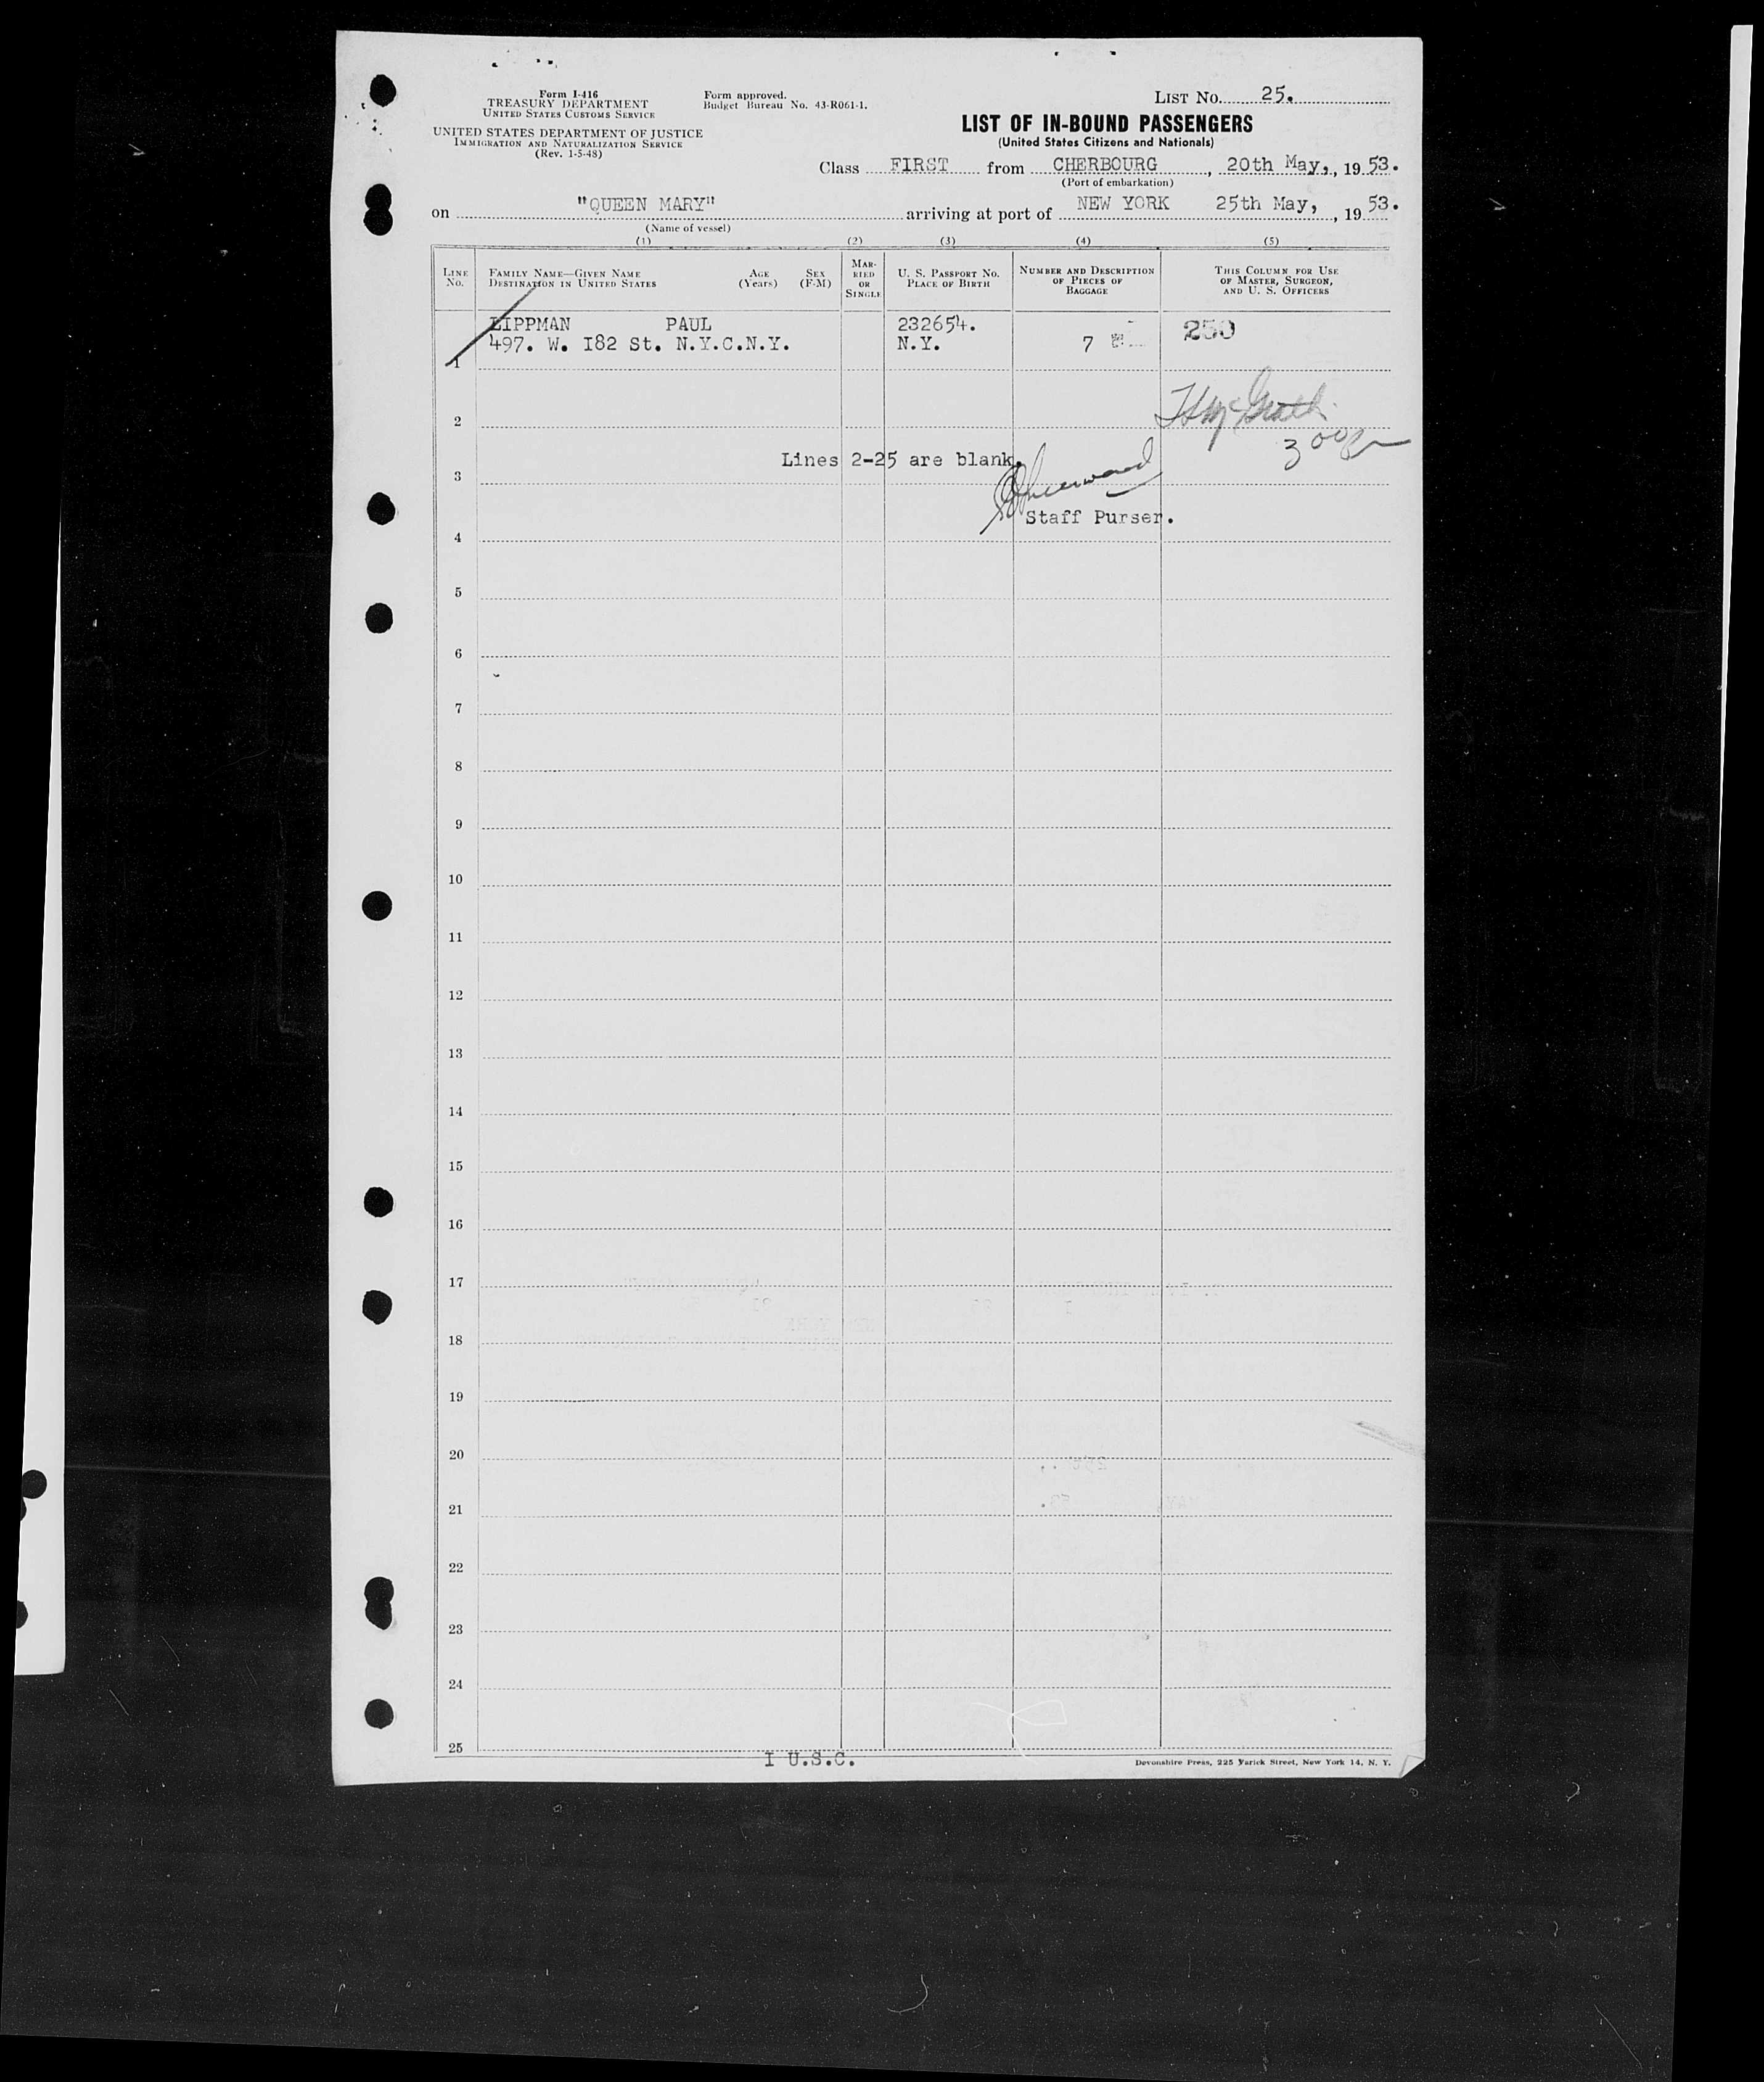 Form I-416
TREASURY DEPARTMENT
UNITED STATES CUSTOMS SERVICE
UNITED STATES DEPARTMENT OF JUSTICE
IMMIGRATION AND NATURALIZATION SERVICE
(Rev. 1-5-48)
Form approved.
Budget Bureau No. 43-R061-1.
LIST NO. 25.
LIST OF IN-BOUND PASSENGERS
(United States Citizens and Nationals)
Class FIRST from CHERBOURG, 20th May, , 19 53.
(Port of embarkation)
on "QUEEN MARY" arriving at port of NEW YORK 25th May, , 19 53.
(Name of vessel)
(1) (2) (3) (4) (5)
LINE NO.
FAMILY NAME—GIVEN NAME AGE SEX
DESTINATION IN UNITED STATES (Years) (F-M)
MARRIED OR SINGLE
U. S. PASSPORT NO.
PLACE OF BIRTH
NUMBER AND DESCRIPTION
OF PIECES OF
BAGGAGE
THIS COLUMN FOR USE
OF MASTER, SURGEON,
AND U. S. OFFICERS
LIPPMAN PAUL 232654. 250
1 497. W. I82 St. N.Y.C.N.Y. N.Y. 7
2
Lines 2-25 are blank.
3
Staff Purser.
4
5
6
7
8
9
10
11
12
13
14
15
16
17
18
19
20
21
22
23
24
25
I U.S.C.
Devonshire Press, 225 Varick Street, New York 14, N. Y.